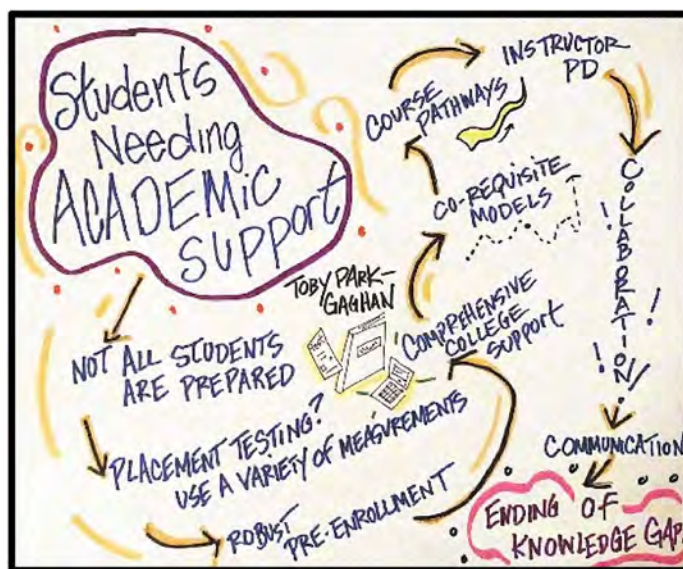 Students
Needing
ACADEMIC
SUPPORT
NOT ALL STUDENTS
ARE PREPARED
PLACEMENT TESTING?
USE A VARIETY OF MEASUREMENTS
ROBUST
PRE-ENROLLMENT
TOBY PARK-
GAGHAN
COMPREHENSIVE
COLLEGE
SUPPORT
CO-REQUISITE
MODELS
COURSE
PATHWAYS
INSTRUCTOR
PD
COLLABORATION!
COMMUNICATION
ENDING OF
KNOWLEDGE GAP